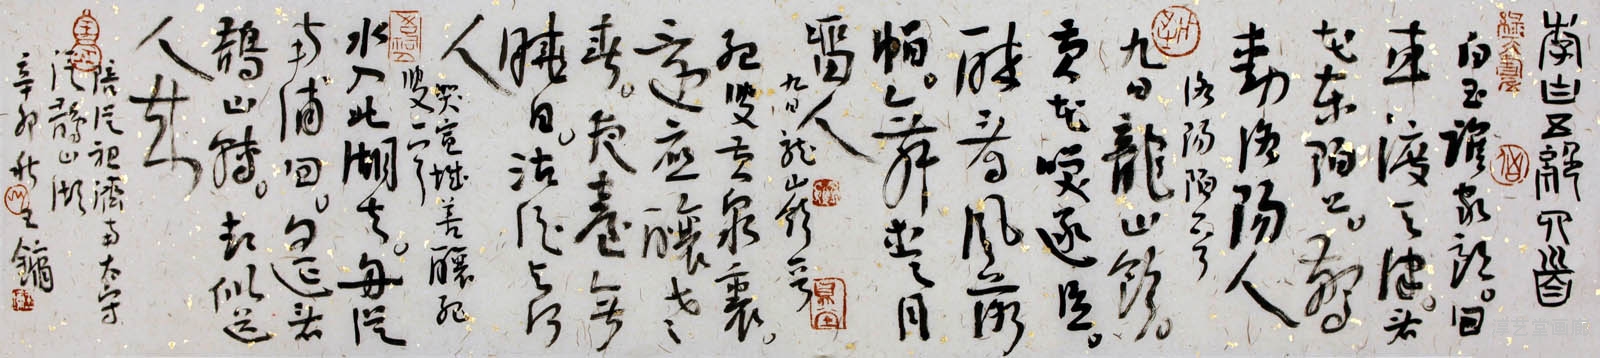 李白五絕四首
白玉誰家郎。回
車渡天津。看
花東陌上。驚
動洛陽人
洛陽陌一首
九日龍山飲。
黃花笑逐臣。
醉看風落
帽。舞愛月
留人
九日龍山飲一首
紀叟黃泉裏。
還應釀老
春。夜臺無
曉日。沽酒與何
人
哭宣城善釀紀
叟一首
水入北湖去。舟從
南浦回。遙看
鵲山轉。却似送
人来
陪從祖濟南太守
泛鵲山湖
辛卯秋 王鏞